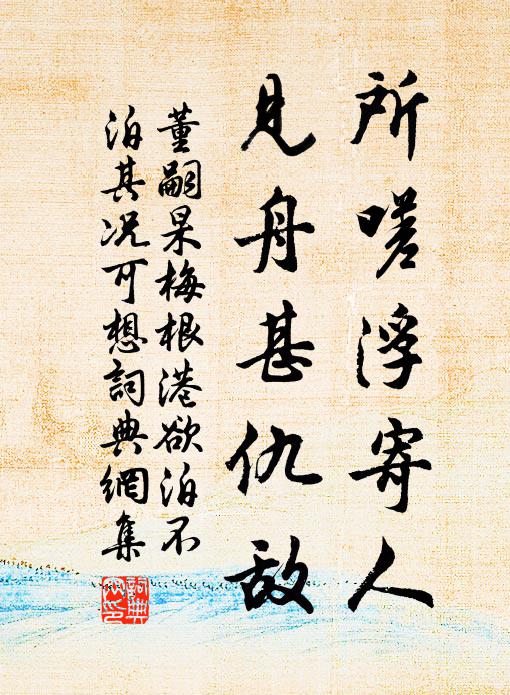 所嗟浮寄人
見舟甚仇敵
董嗣杲梅根港欲泊不
泊其况可想詞典網集